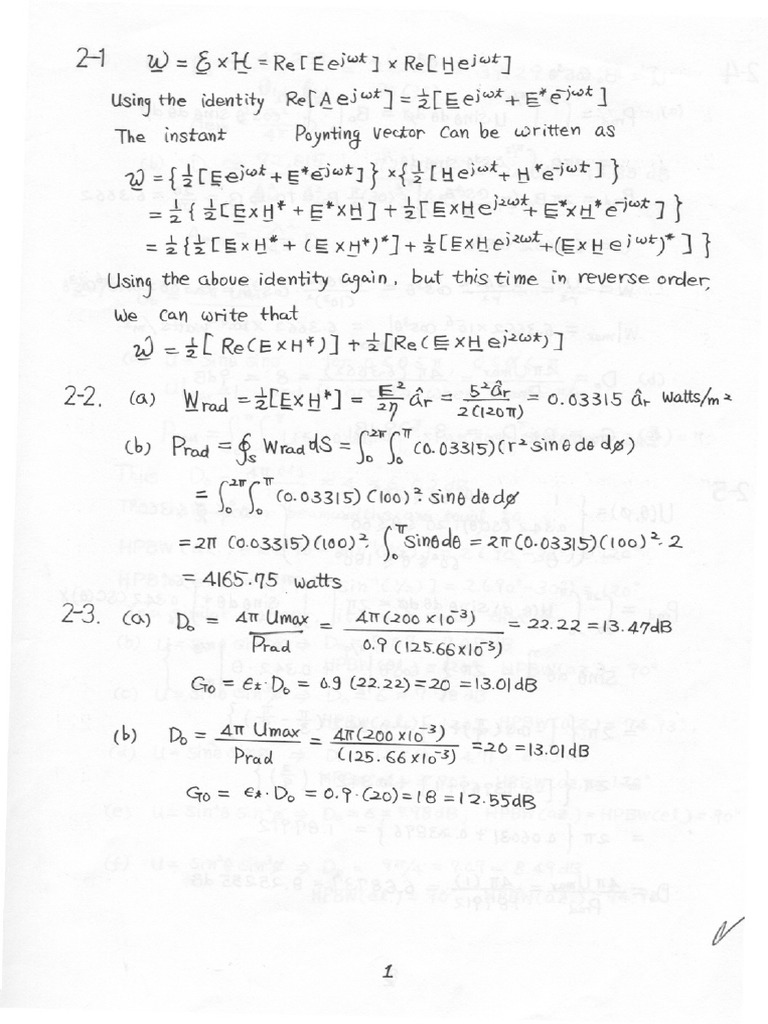 2-1 W = E × H = Re[Ee^jωt] × Re[He^jωt]
Using the identity Re[Ae^jωt] = ½[Ee^jωt + E*e^-jωt]
The instant Poynting vector can be written as
W = {½[Ee^jωt + E*e^-jωt]} × {½[He^jωt + H*e^-jωt]}
= ½{½[E×H* + E*×H] + ½[E×He^j2ωt + E*×H*e^-jωt]}
= ½{½[E×H* + (E×H*)*] + ½[E×He^j2ωt + (E×He^jωt)*]}
Using the above identity again, but this time in reverse order,
we can write that
W = ½[Re(E×H*)] + ½[Re(E×He^j2ωt)]
2-2. (a) Wrad = ½[E×H*] = E²/2η âr = 5²âr/2(120π) = 0.03315 âr watts/m²
(b) Prad = ∮s Wrad dS = ∫₀^2π ∫₀^π (0.03315)(r² sinθ dθ dø)
= ∫₀^2π ∫₀^π (0.03315)(100)² sinθ dθ dø
= 2π (0.03315)(100)²· ∫₀^π sinθdθ = 2π(0.03315)(100)²·2
= 4165.75 watts
2-3. (a) D₀ = 4π Umax/Prad = 4π(200×10⁻³)/0.9(125.66×10⁻³) = 22.22 = 13.47dB
G₀ = et·D₀ = 0.9(22.22) = 20 = 13.01dB
(b) D₀ = 4π Umax/Prad = 4π(200×10⁻³)/(125.66×10⁻³) = 20 = 13.01dB
G₀ = et·D₀ = 0.9·(20) = 18 = 12.55dB
1